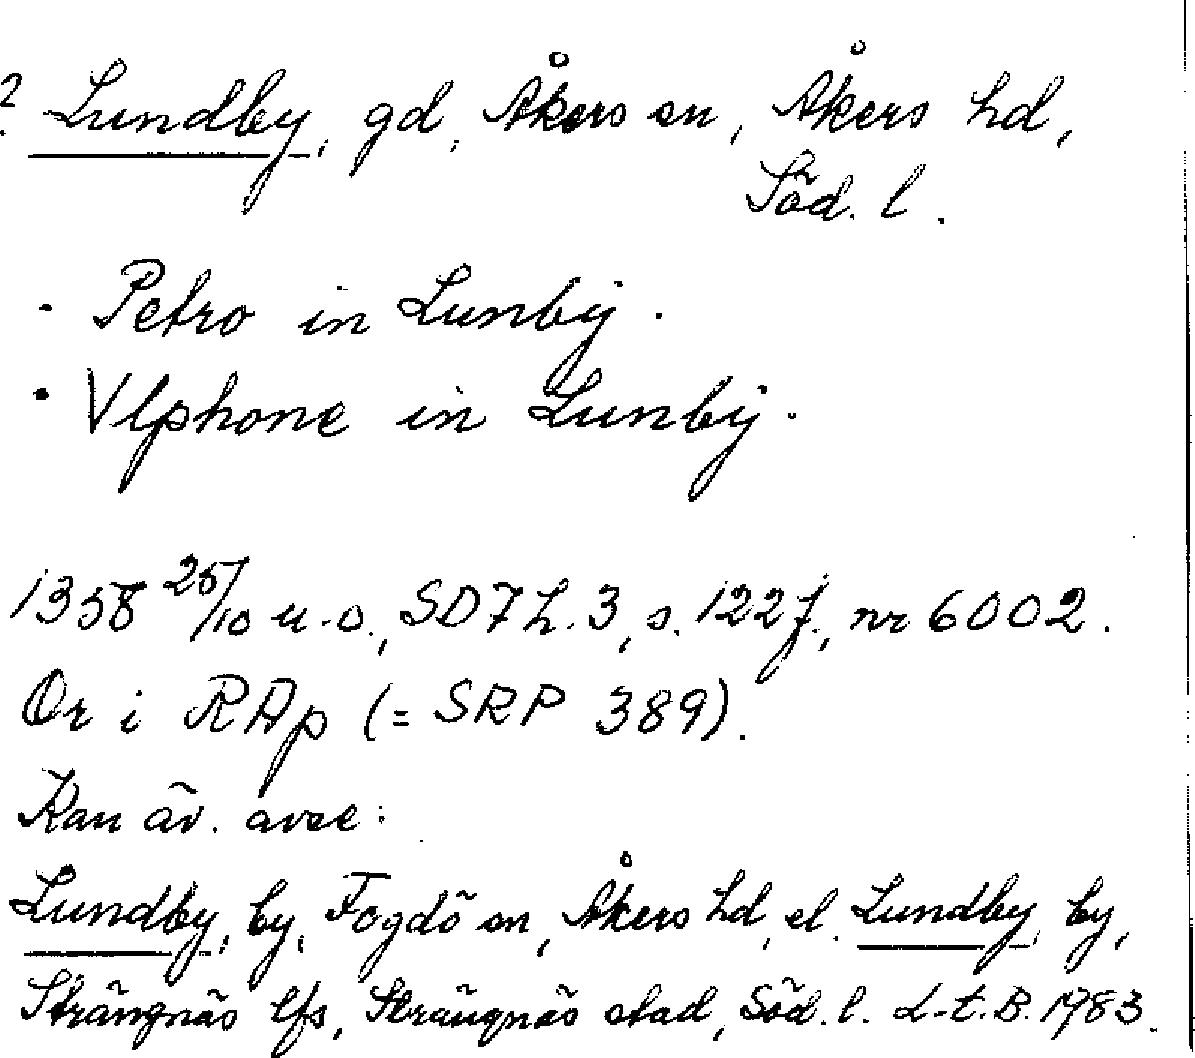 2. Lundby, gd, Åkers sn, Åkers hd,
Söd. l.
· Petro in Lunby.
· Vlphone in Lunby.
1358 25/10 u.o., SD7 h. 3, s. 122 f., nr 6002.
Or i RAp (= SRP 389).
Kan äv. avse:
Lundby, by, Fogdö sn, Åkers hd, el. Lundby, by,
Strängnäs lfs, Strängnäs stad, Söd. l. L-t.B. 1983.